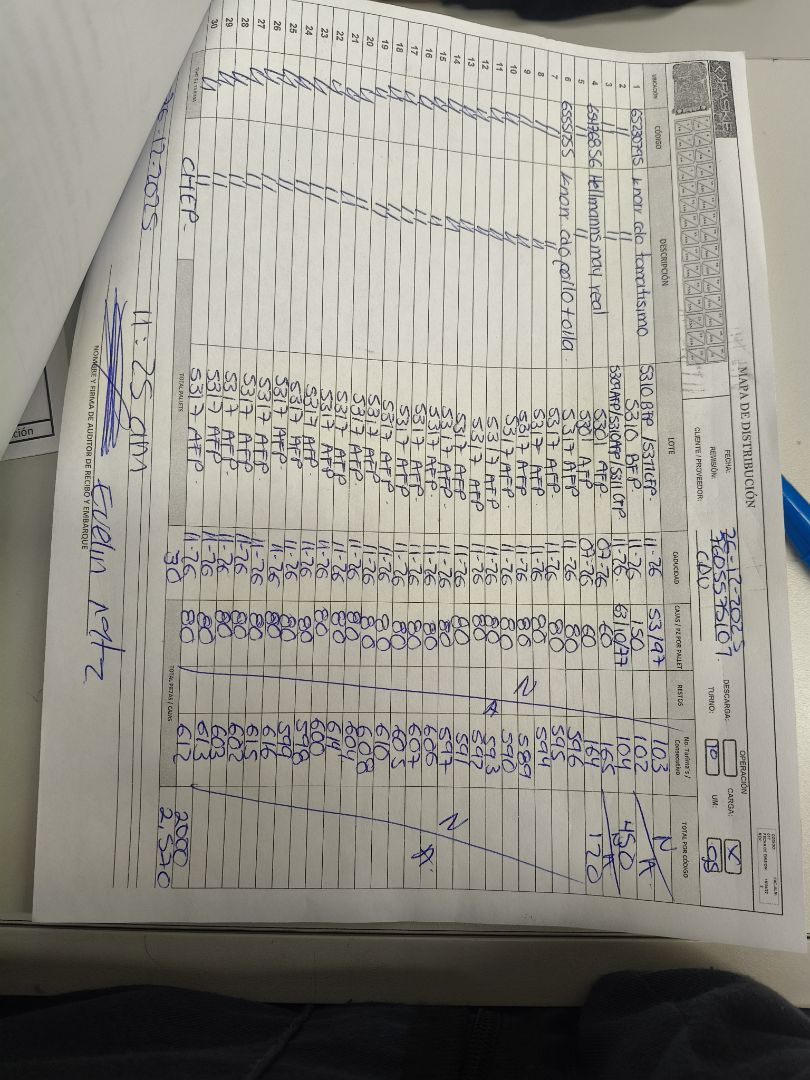 PASKE
MAPA DE DISTRIBUCIÓN
OPERACIÓN
FECHA: 26-12-2025 DESCARGA: CARGA: X
REMISIÓN: TURNO: 1º UM: cjs
CLIENTE / PROVEEDOR:
UBICACIÓN CÓDIGO DESCRIPCIÓN LOTE CADUCIDAD CAJAS / PZ POR PALLET RESTOS No. Tarima's / Consecutivo TOTAL POR CÓDIGO
1 65230795 knorr cdo tomatisimo 5310 BFP /5311CFP 11-26 53/97 103 N
2 " " 5310 BFP 11-26 150 102 A
3 " " 5309AFP/5310AFP/5311CFP 11-26 63/10/77 104 450
4 69176856 Hellmanns may real 5301 AFP 07-26 60 165 A
5 " " 5301 AFP 07-26 60 164 120
6 65551255 knorr cdo pollo tolla 5317 AFP 11-26 80 596
7 " " 5317 AFP 11-26 80 595
8 " " 5317 AFP 11-26 80 594
9 " " 5317 AFP 11-26 80 N 589
10 " " 5317 AFP 11-26 80 590
11 " " 5317 AFP 11-26 80 A 593
12 " " 5317 AFP 11-26 80 592
13 " " 5317 AFP 11-26 80 591
14 " " 5317 AFP 11-26 80 597 N
15 " " 5317 AFP 11-26 80 606
16 " " 5317 AFP 11-26 80 607 A
17 " " 5317 AFP 11-26 80 605
18 " " 5317 AFP 11-26 80 610
19 " " 5317 AFP 11-26 80 608
20 " " 5317 AFP 11-26 80 604
21 " " 5317 AFP 11-26 80 614
22 " " 5317 AFP 11-26 80 600
23 " " 5317 AFP 11-26 80 598
24 " " 5317 AFP 11-26 80 599
25 " " 5317 AFP 11-26 80 616
26 " " 5317 AFP 11-26 80 615
27 " " 5317 AFP 11-26 80 602
28 " " 5317 AFP 11-26 80 603
29 " " 5317 AFP 11-26 80 613
30 " " 5317 AFP 11-26 80 612 2000
CHEP- TOTAL PALLETS 30 TOTAL PIEZAS / CAJAS 2,570
26-12-2025 11:25 am Evelin Mtz
NOMBRE Y FIRMA DE AUDITOR DE RECIBO Y EMBARQUE
ción